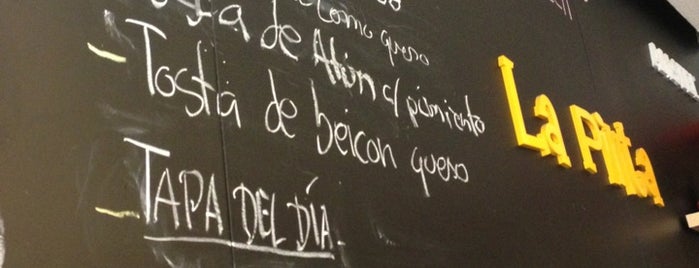 como queso
de Atún c/ pimiento
- Tosta de beicon queso
- TAPA DEL DÍA.
La Pinta